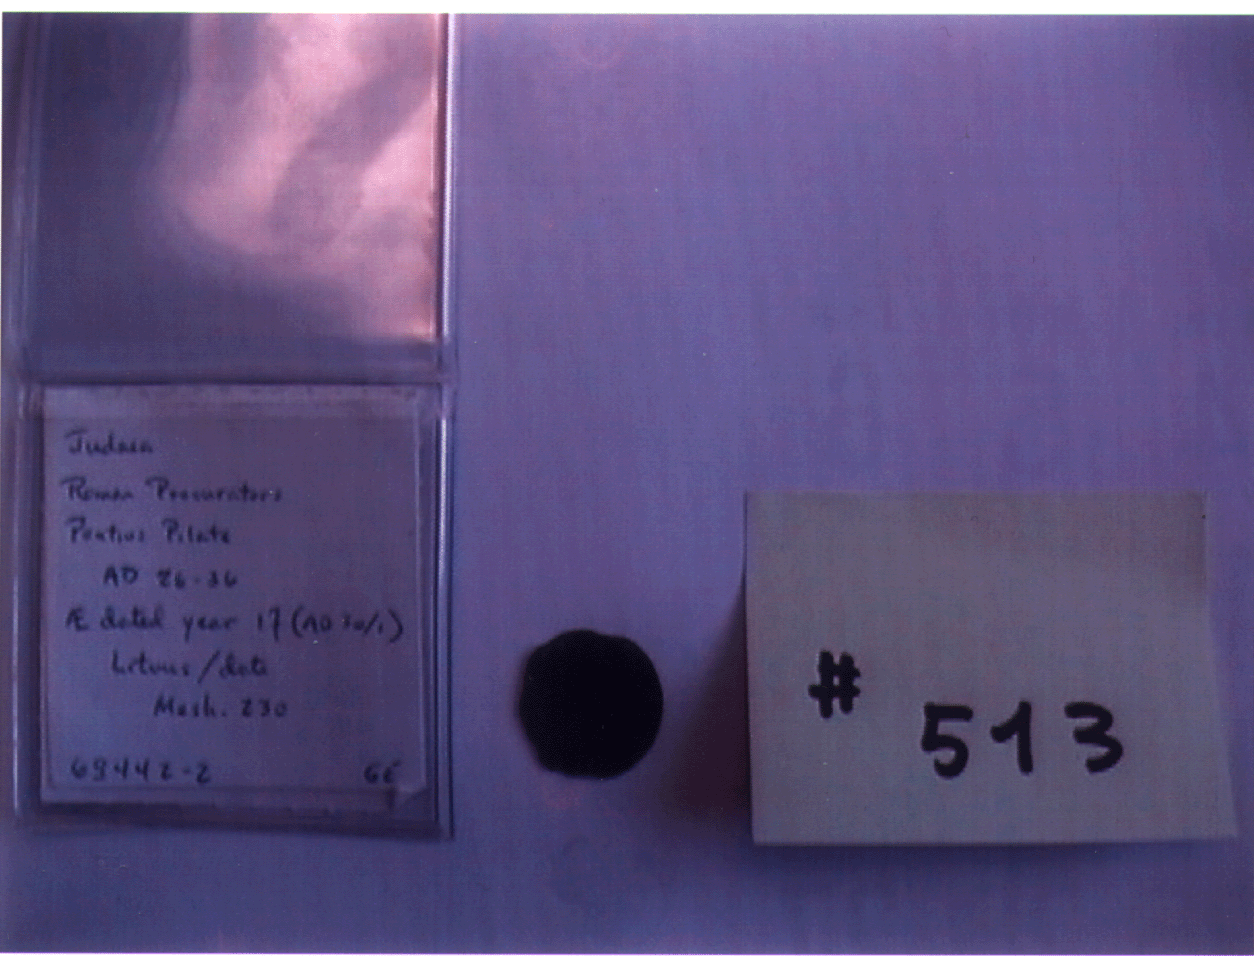 Judaea
Roman Procurators
Pontius Pilate
AD 26-36
Æ dated year 17 (AD 30/1)
Lituus/date
Mesh. 230
69442-2
#
513